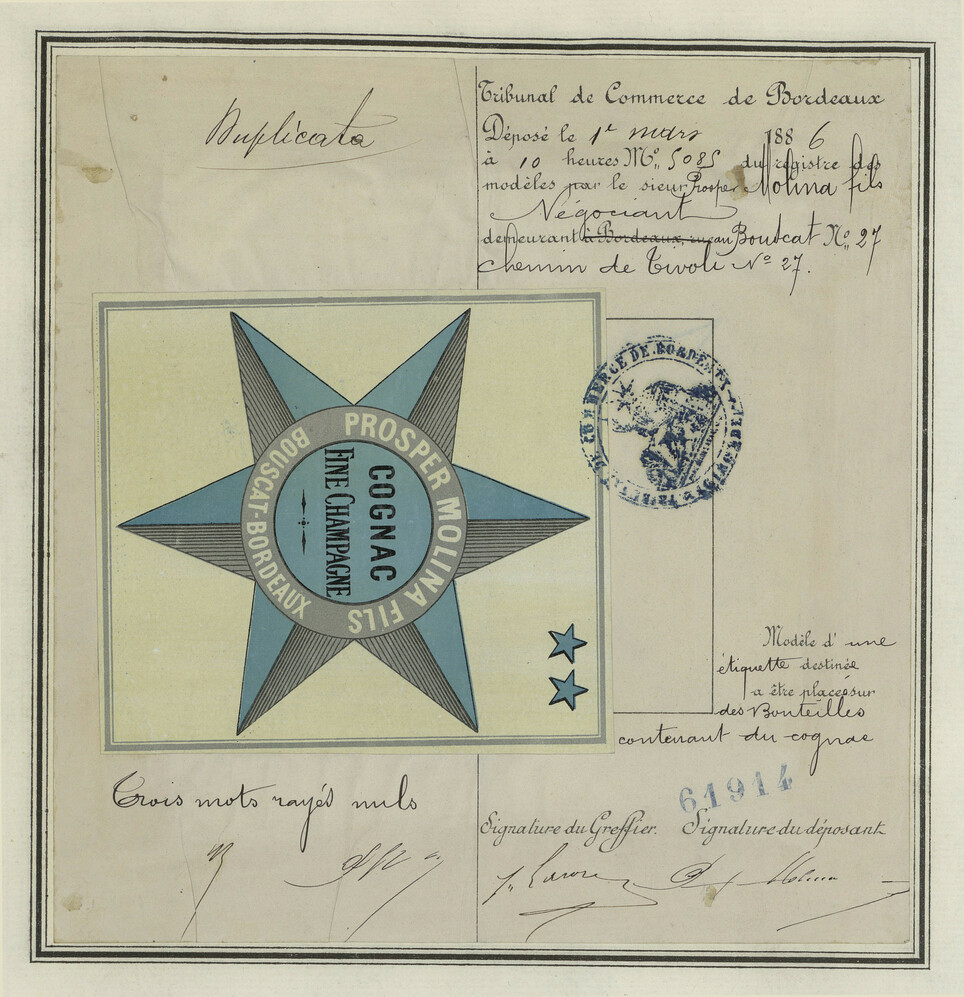 Duplicata
Tribunal de Commerce de Bordeaux
Déposé le 1r mars 1886
à 10 heures No. 5085 du registre des
modèles par le sieur Prosper Molina fils
Négociant
demeurant à Bordeaux, rue au Bouscat No. 27
chemin de Tivoli No 27.
PROSPER MOLINA FILS
BOUSCAT-BORDEAUX
COGNAC
FINE CHAMPAGNE
TRIBUNAL DE COMMERCE DE BORDEAUX
Modèle d'une
étiquette destinée
a être placée sur
des Bouteilles
contenant du cognac
61914
Trois mots rayés nuls
Signature du Greffier. Signature du déposant
Molina